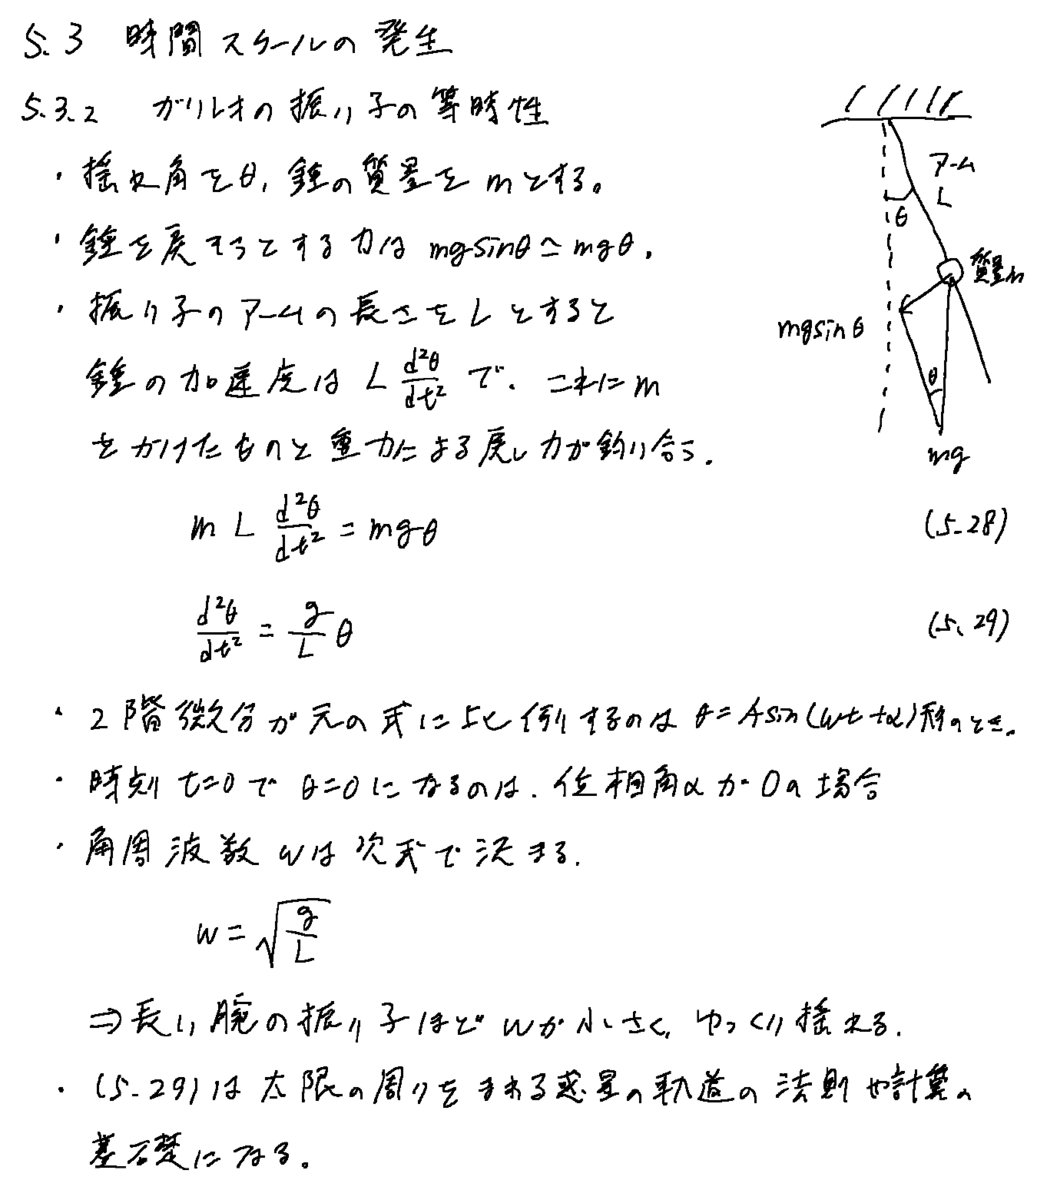 5.3 時間スケールの発生
5.3.2 ガリレオの振り子の等時性
・揺れ角をθ, 錘の質量をmとする。
・錘を戻そうとする力は mgsinθ≃mgθ.
・振り子のアームの長さをLとすると
錘の加速度は L d²θ/dt² で、これにm
をかけたものと重力による戻し力が釣り合う.
m L d²θ/dt² = mgθ (5-28)
d²θ/dt² = g/L θ (5.29)
・2階微分が元の式に比例するのは θ=Asin(ωt+α)形のとき。
・時刻 t=0で θ=0になるのは、位相角αが0の場合
・角周波数 ωは次式で決まる.
ω=√(g/L)
⇒長い腕の振り子ほどωが小さく, ゆっくり揺れる.
・(5-29)は太限の周りをまわる惑星の軌道の法則や計算の
基礎になる。
アーム
L
θ
質量m
mgsinθ
θ
mg